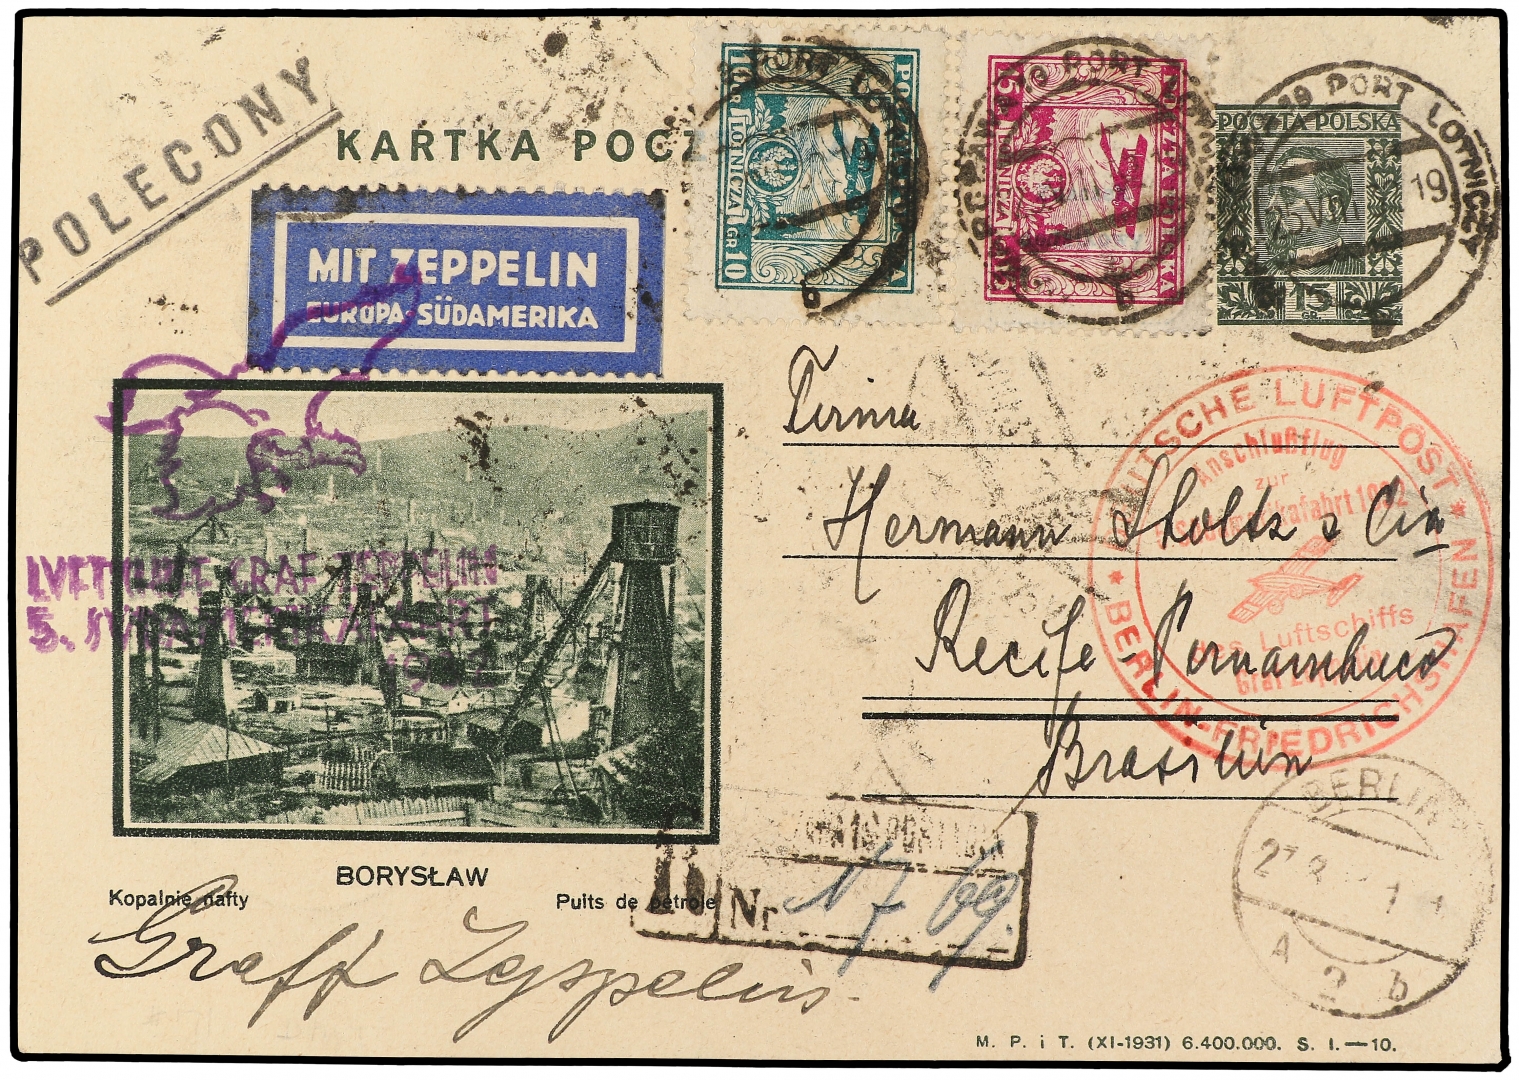 POLECONY
KARTKA POCZ
MIT ZEPPELIN
EUROPA-SÜDAMERIKA
LOTNICZA
GR 10
LOTNICZA
POCZTA POLSKA
15
GR.
PORT LOTNICZY
19
b
b
Firma
Hermann Stoltz & Cia
Recife, Pernambuco
Brasilien
DEUTSCHE LUFTPOST
BERLIN-FRIEDRICHSHAFEN
Anschlußflug
zur
5. Südamerikafahrt 1932
des Luftschiffs
Graf Zeppelin
LUFTSCHIFF GRAF ZEPPELIN
5. SÜDAMERIKAFAHRT
1932
BORYSŁAW
Kopalnie nafty
Puits de pétrole
R
Nr
Graff Zeppelin.
BERLIN
A 2 b
M. P. i T. (XI-1931) 6.400.000. S. I.—10.